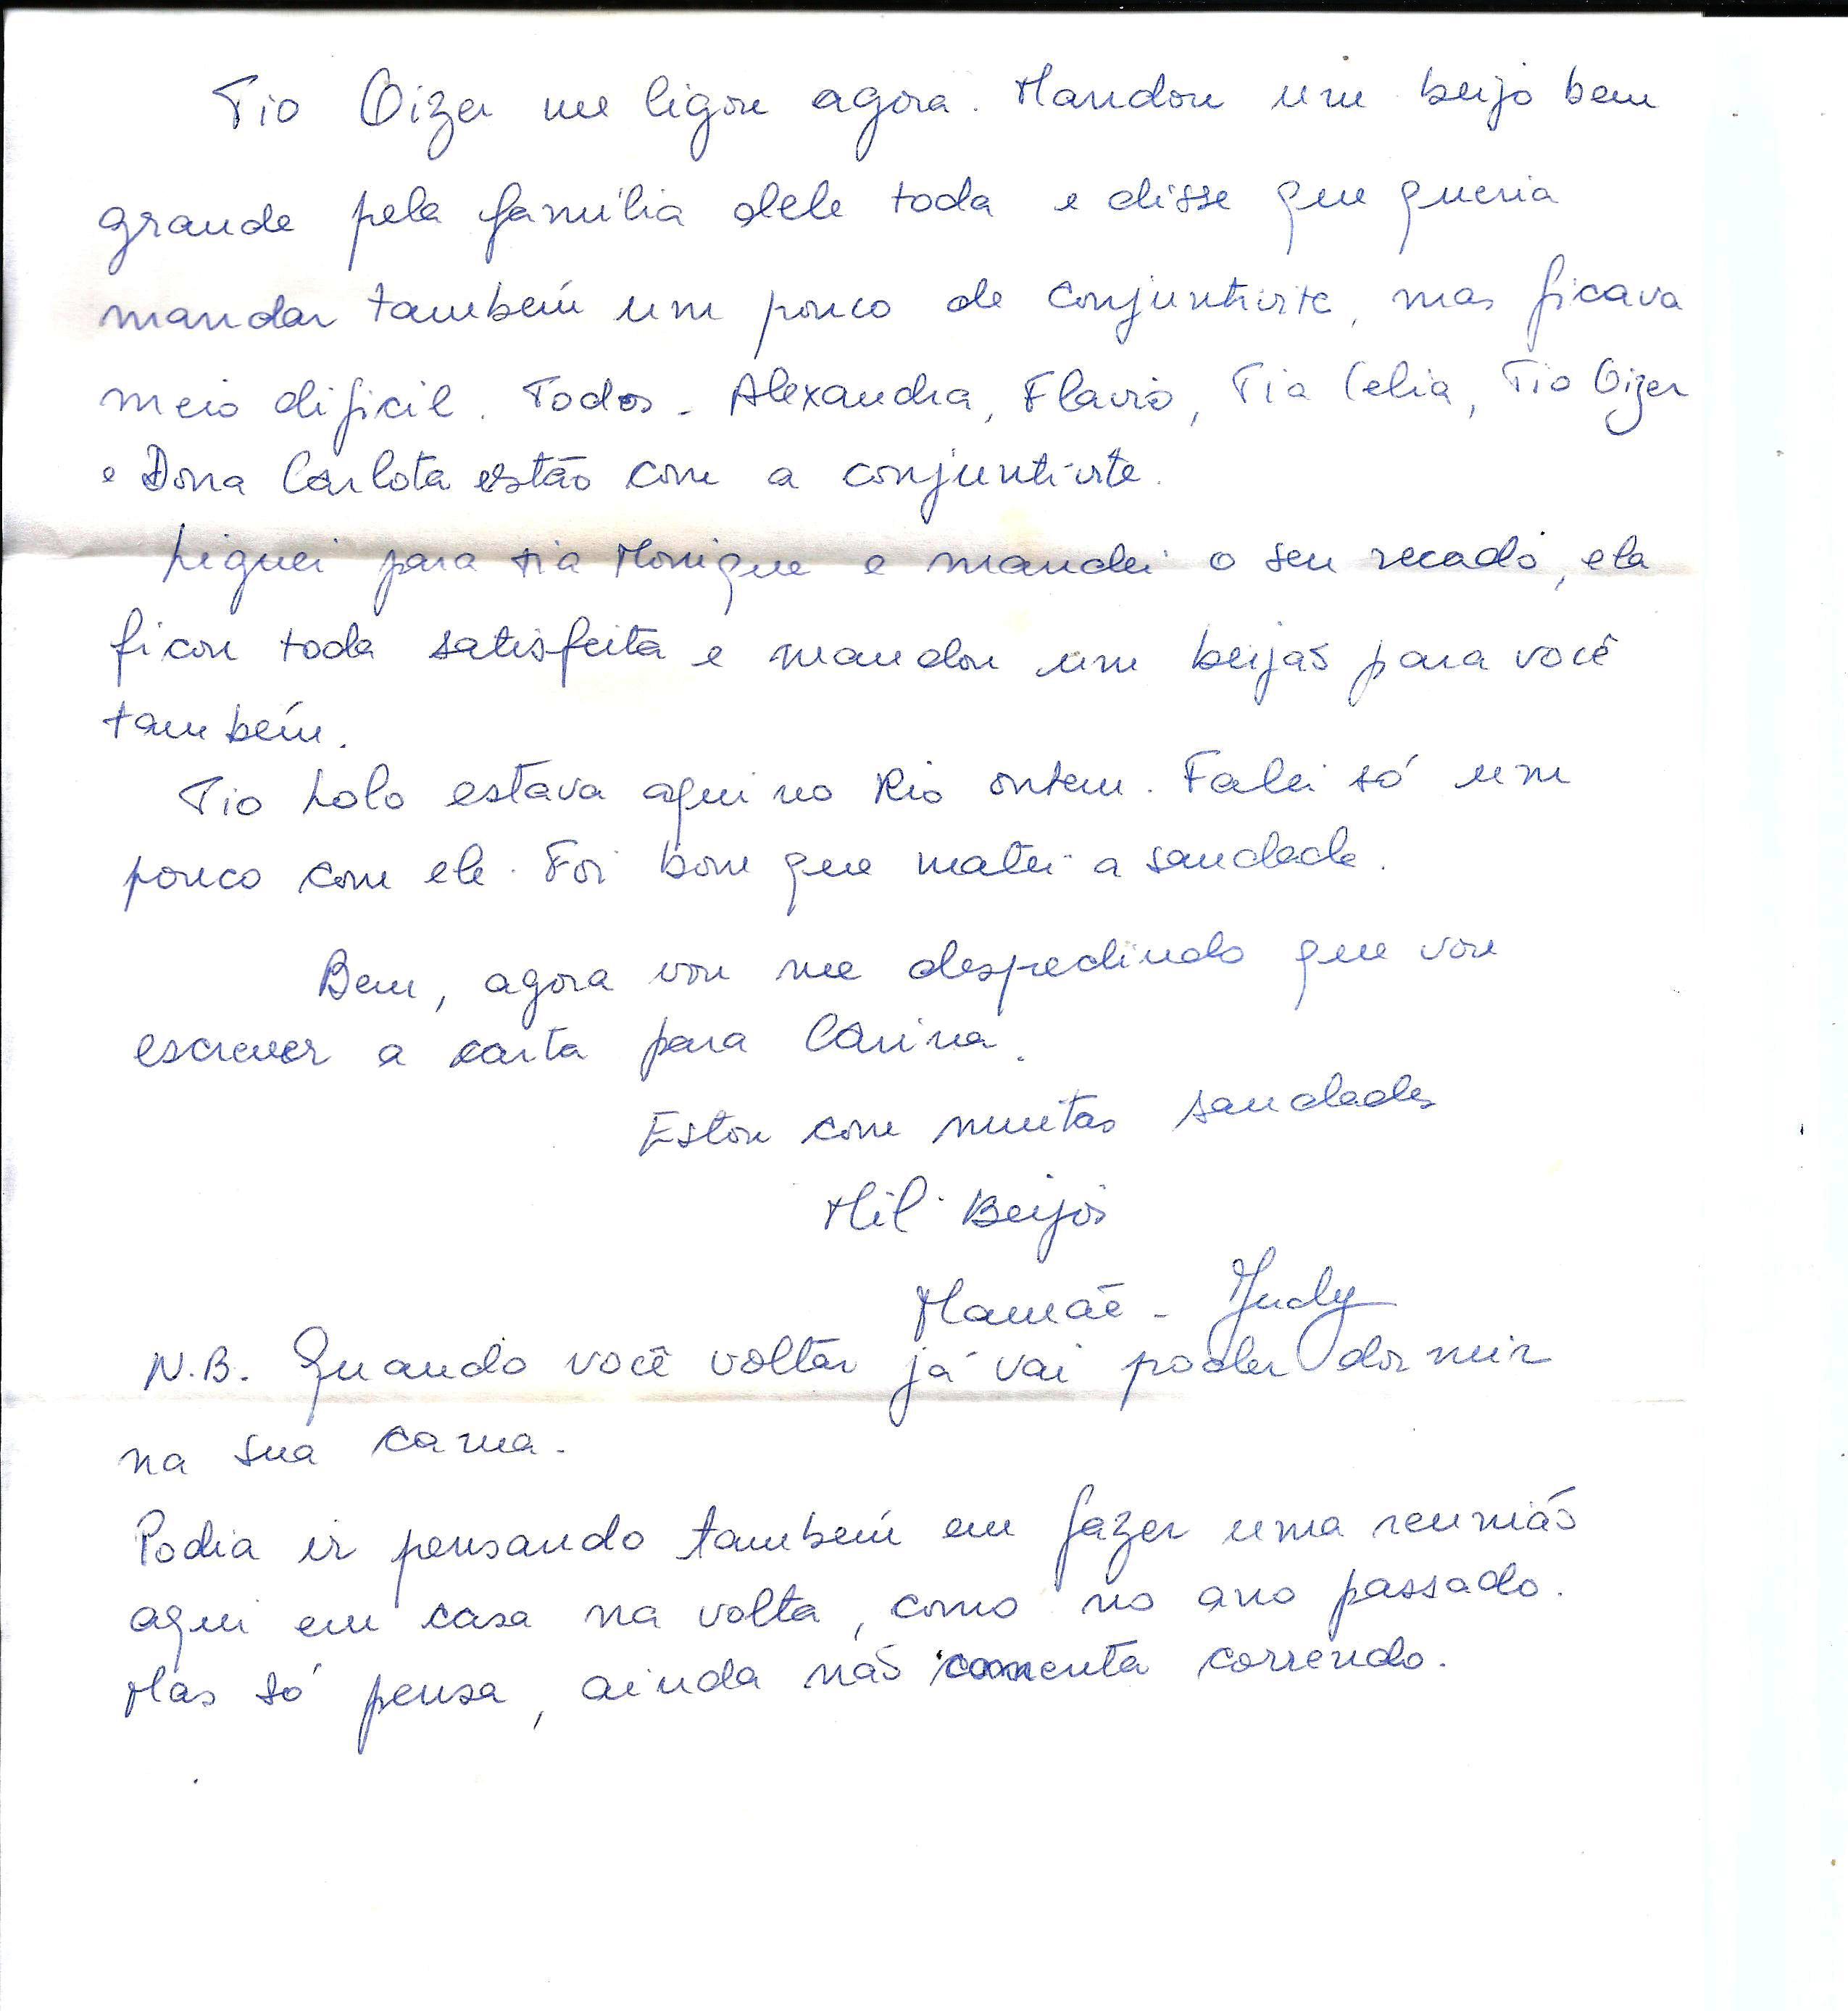 Tio Oizer me ligou agora. Mandou um beijo bem
grande pela família dele toda e disse que queria
mandar também um pouco de conjuntivite, mas ficava
meio dificil. Todos - Alexandra, Flavio, Tia Celia, Tio Oizer
e Dona Carlota estão com a conjuntivite.
Liguei para tia Monique e mandei o seu recado, ela
ficou toda satisfeita e mandou um beijão para você
também.
Tio Lolo estava aqui no Rio ontem. Falei só um
pouco com ele. Foi bom que matei a saudade.
Bem, agora vou me despedindo que vou
escrever a carta para Carina.
Estou com muitas saudades
Mil Beijos
Mamãe - Judy
N.B. Quando você voltar já vai poder dormir
na sua cama.
Podia ir pensando também em fazer uma reunião
aqui em casa na volta, como no ano passado.
Mas só pensa, ainda não comenta correndo.